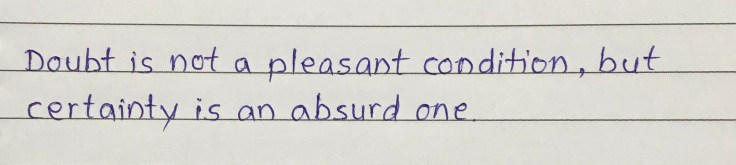 Doubt is not a pleasant condition, but
certainty is an absurd one.